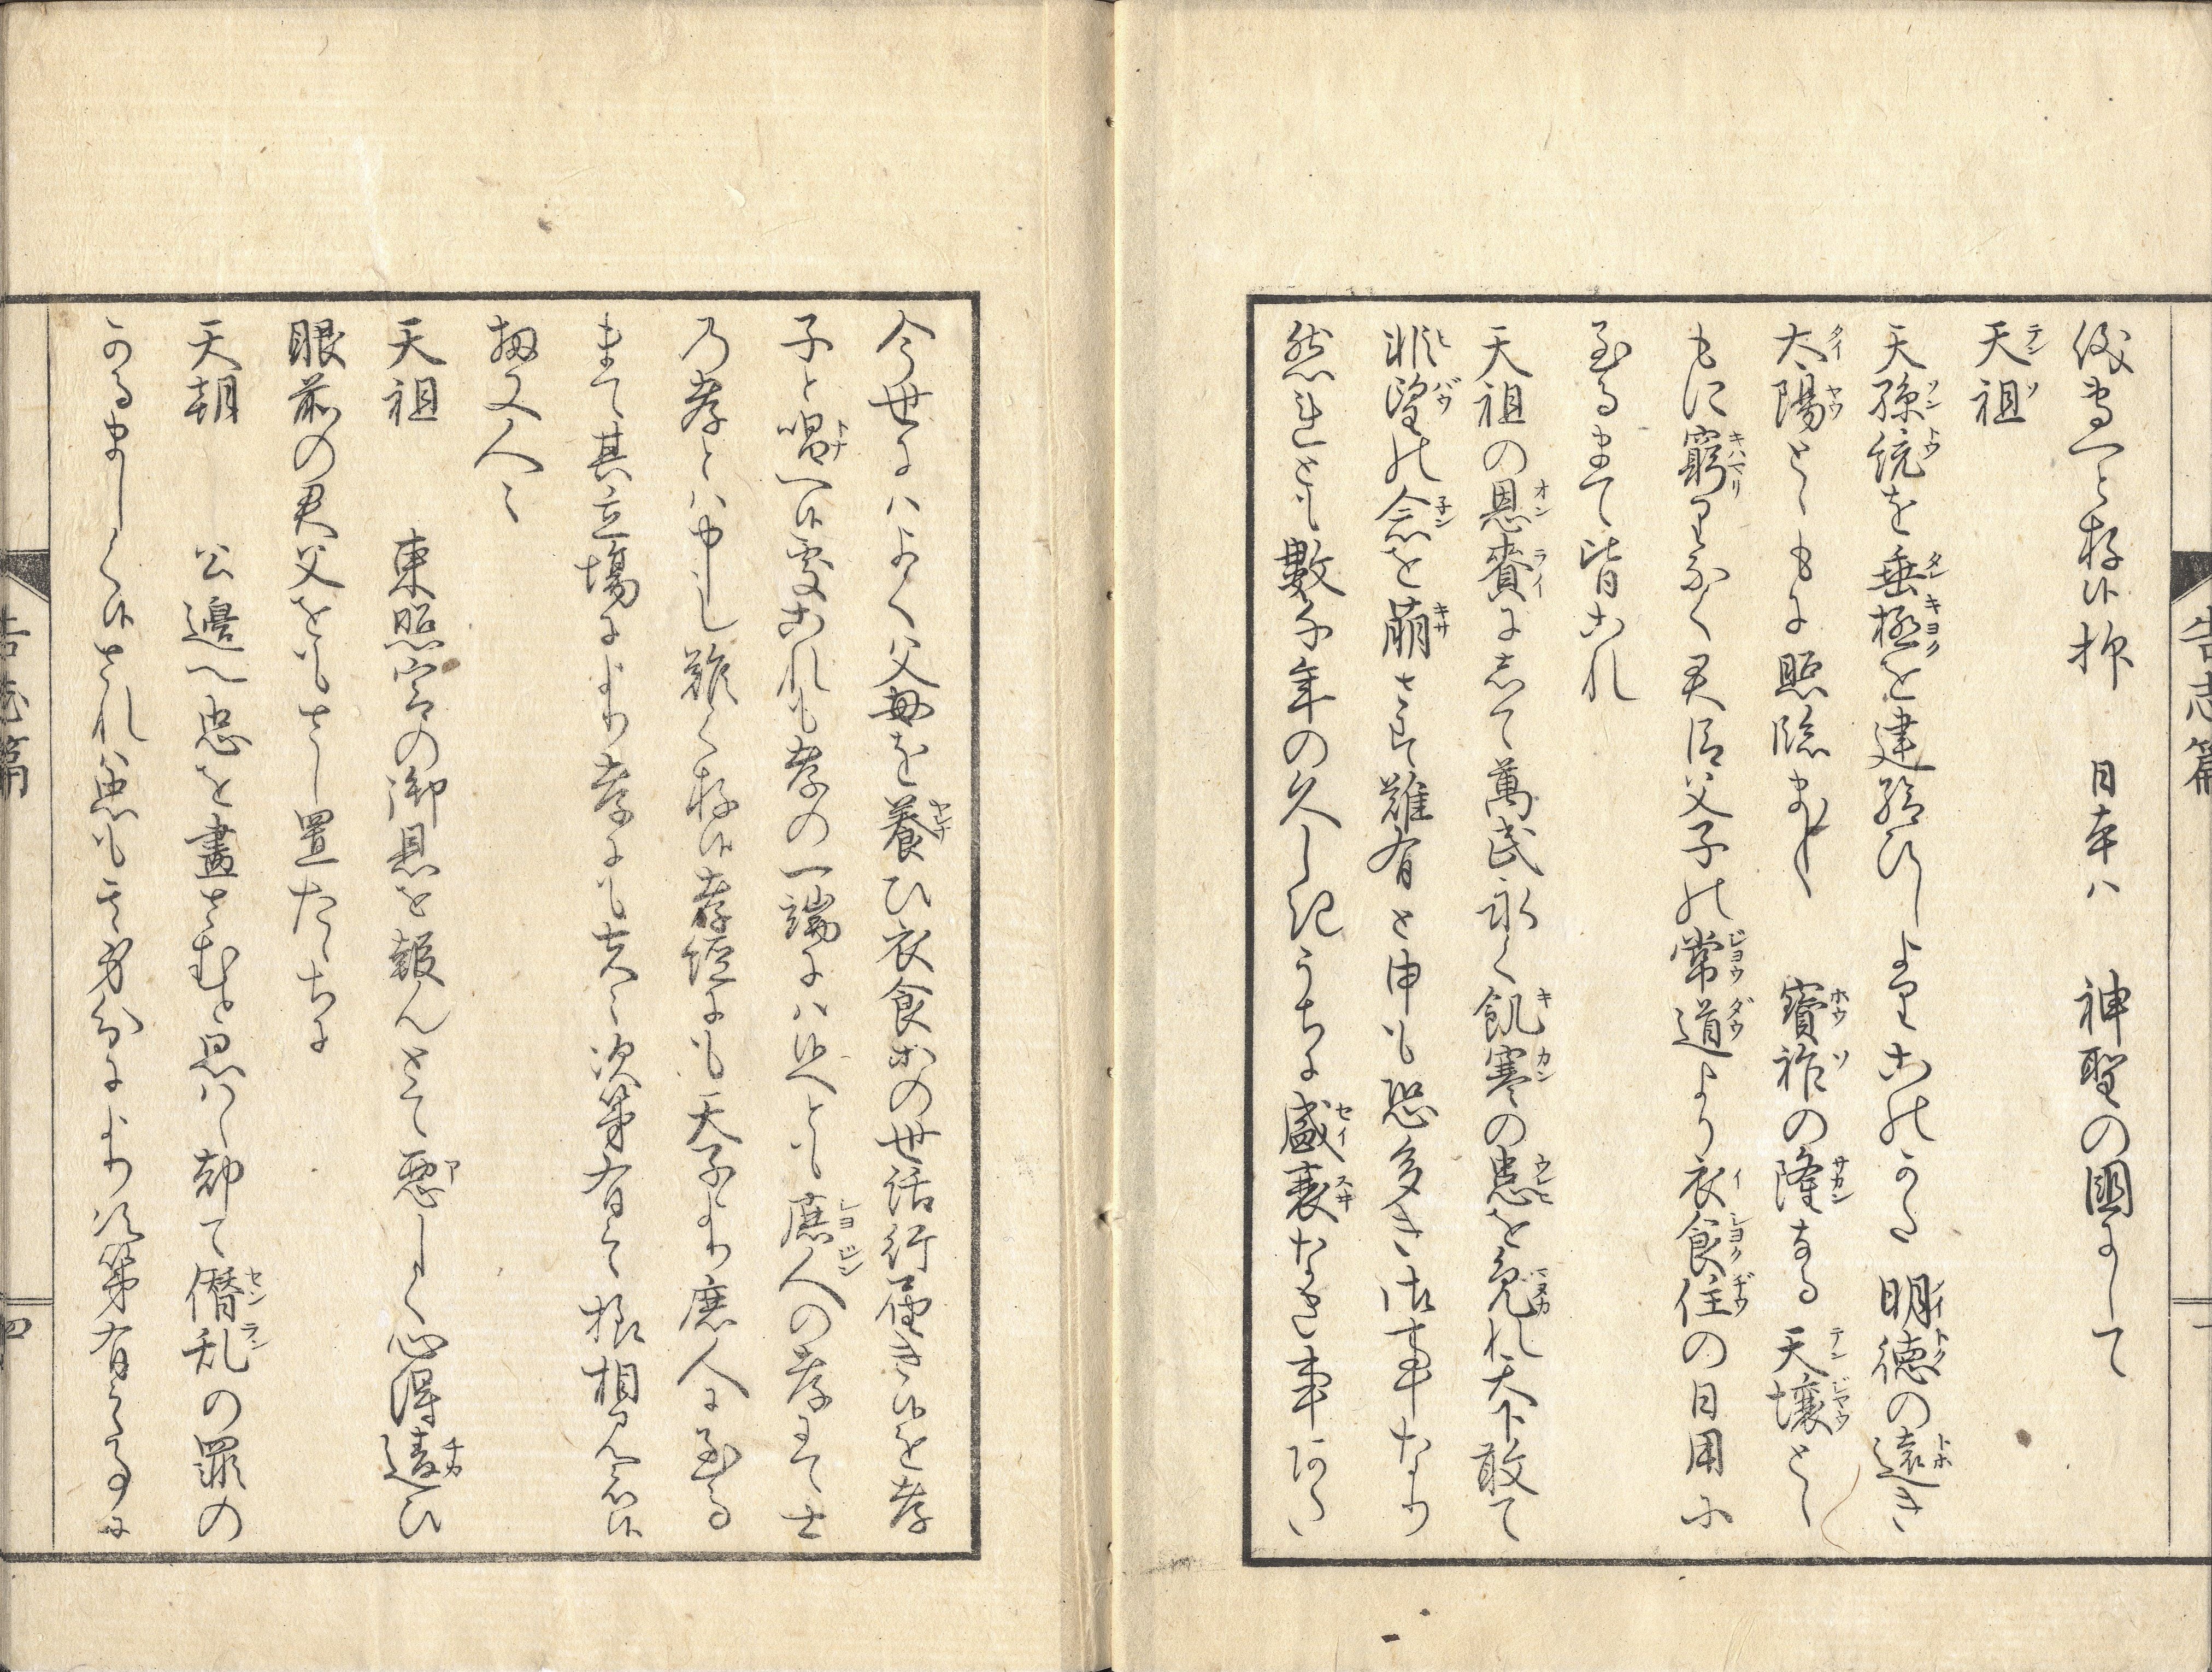 儀当へと存候抑　日本ハ　神聖の国にして
天祖
天孫統を垂極を建給ひしよりこのかた　明徳の遠き
太陽とゝもに照臨まし〳〵　宝祚の隆なる　天壌とゝ
もに窮りなく君臣父子の常道より衣食住の日用に
至るまて皆これ
天祖の恩賚にして万民永く飢寒の患を免れ天下敢て
非望の念を萌さす難有と申も恐多き御事なり
然れとも数千年の久しきうちに盛衰なき事あたハ
今世にハよく父母を養ひ衣食等の世話行届き候を孝
子と唱へ候処これも孝の一端にハ候へとも庶人の孝にて士
の孝とハ申し難く存候孝経にも天子より庶人に至る
まて其立場により孝にも夫々次第有之様相見え候
扨又人々
天祖　東照宮の御恩を報んとて悪しく心得違ひ
眼前の君父をもさし置たゝちに
天朝　公辺へ忠を尽さむと思ハゝ却て僭乱の罪の
かるましく候されハ忠も其身分により次第有之事に
告志篇
告志篇　四